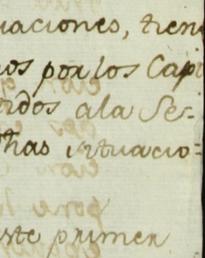 uaciones, tiene
nos por los Capi
erdos a la Se-
chas situacio-
este primer